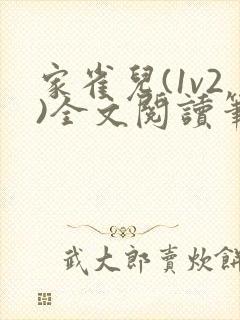 家雀兒(1v2
)全文閱讀筆
武大郎賣炊餅